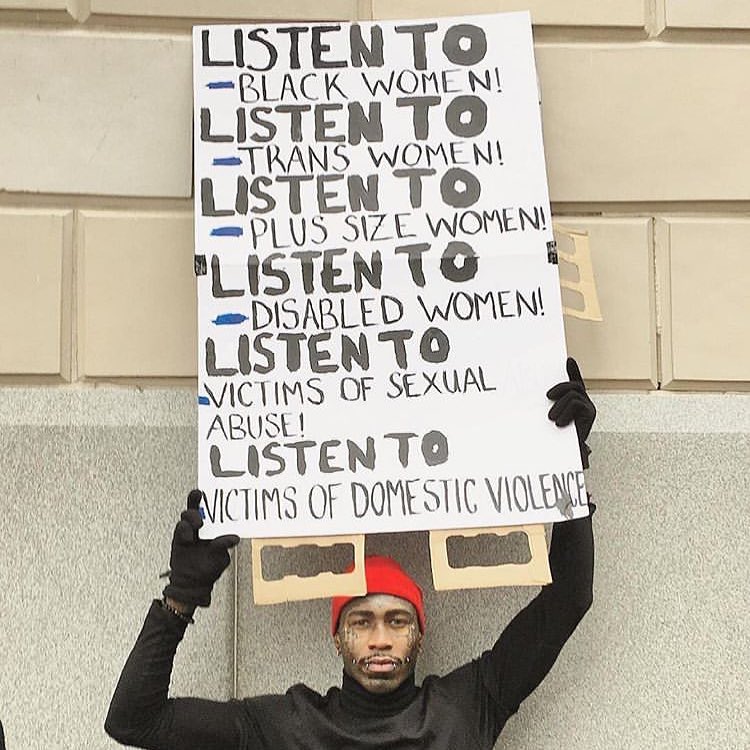 LISTEN TO
- BLACK WOMEN!
LISTEN TO
- TRANS WOMEN!
LISTEN TO
- PLUS SIZE WOMEN!
LISTEN TO
- DISABLED WOMEN!
LISTEN TO
- VICTIMS OF SEXUAL
ABUSE!
LISTEN TO
- VICTIMS OF DOMESTIC VIOLENCE